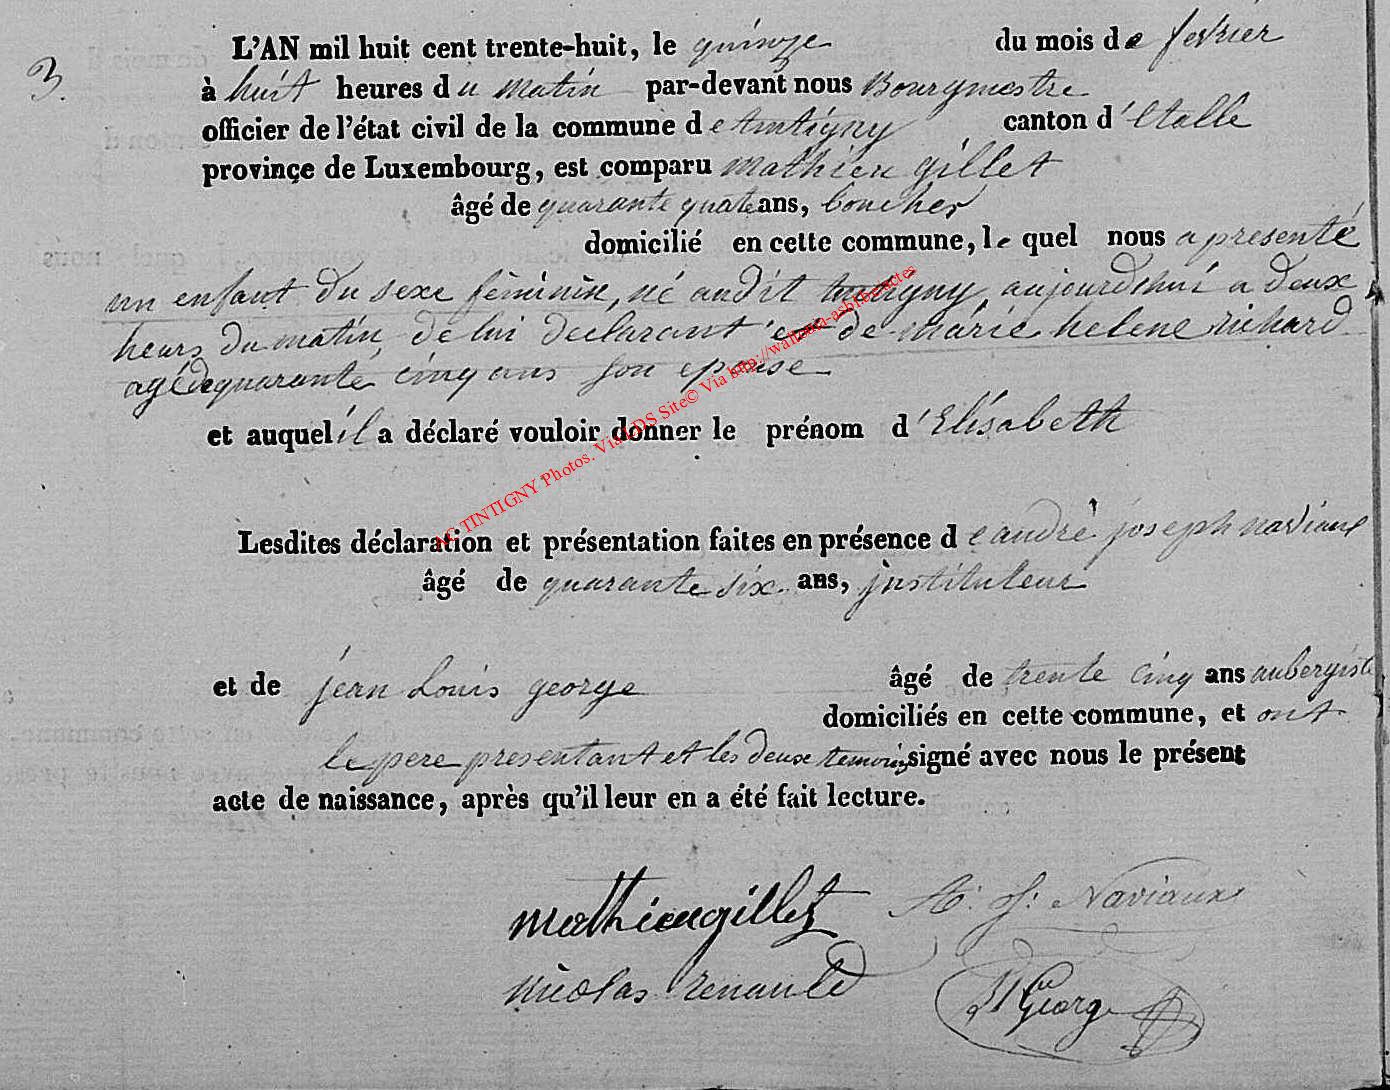 3.
L'AN mil huit cent trente-huit, le quinze du mois de fevrier
à huit heures du matin par-devant nous Bourgmestre
officier de l'état civil de la commune de tintigny canton d'Etalle
province de Luxembourg, est comparu mathieu gillet
âgé de quarante quatre ans, boucher
domicilié en cette commune, le quel nous a presenté
un enfant du sexe féminin, né audit tintigny, aujourdhui a deux
heurs du matin, de lui declarant et de marie helene richard
agé de quarante cinq ans son epouse
et auquel il a déclaré vouloir donner le prénom d'Elisabeth
AC TINTIGNY Photos. Via LDS Site© Via http://wallonia-asbl.be/actes
Lesdites déclaration et présentation faites en présence de andré joseph naviaux
âgé de quarante six ans, instituteur
et de jean Louis george âgé de trente cinq ans aubergiste
domiciliés en cette commune, et ont
le pere presentant et les deux temoins signé avec nous le présent
acte de naissance, après qu'il leur en a été fait lecture.
mathieu gillet A. J. Naviaux
Nicolas Renauld George